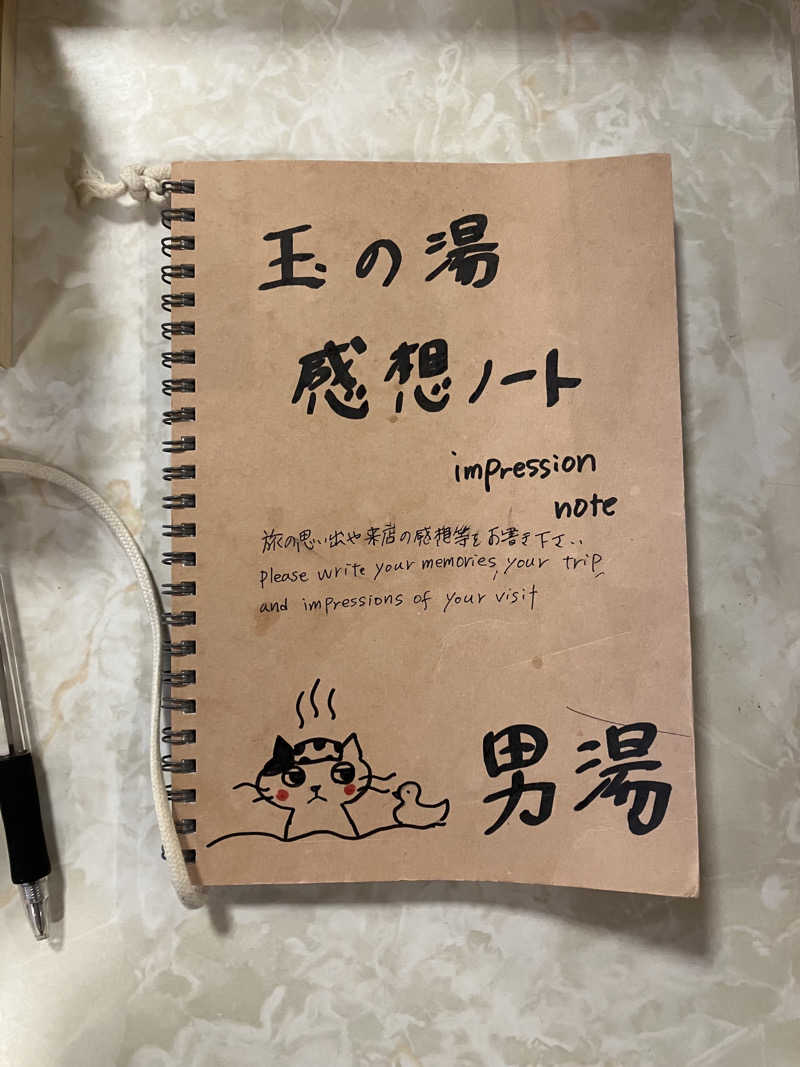 玉の湯
感想ノート
impression
note
旅の思い出や来店の感想等をお書き下さい
please write your memories, your trip
and impressions of your visit
男湯